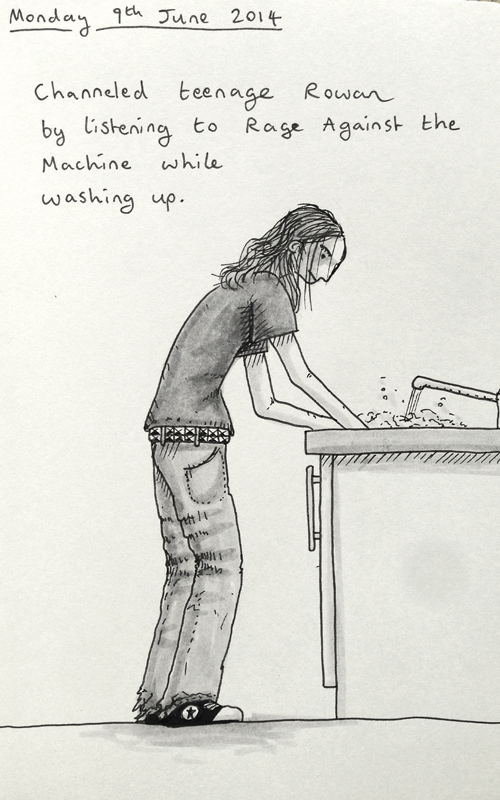 Monday 9th June 2014
Channeled teenage Rowan
by listening to Rage Against the
Machine while
washing up.